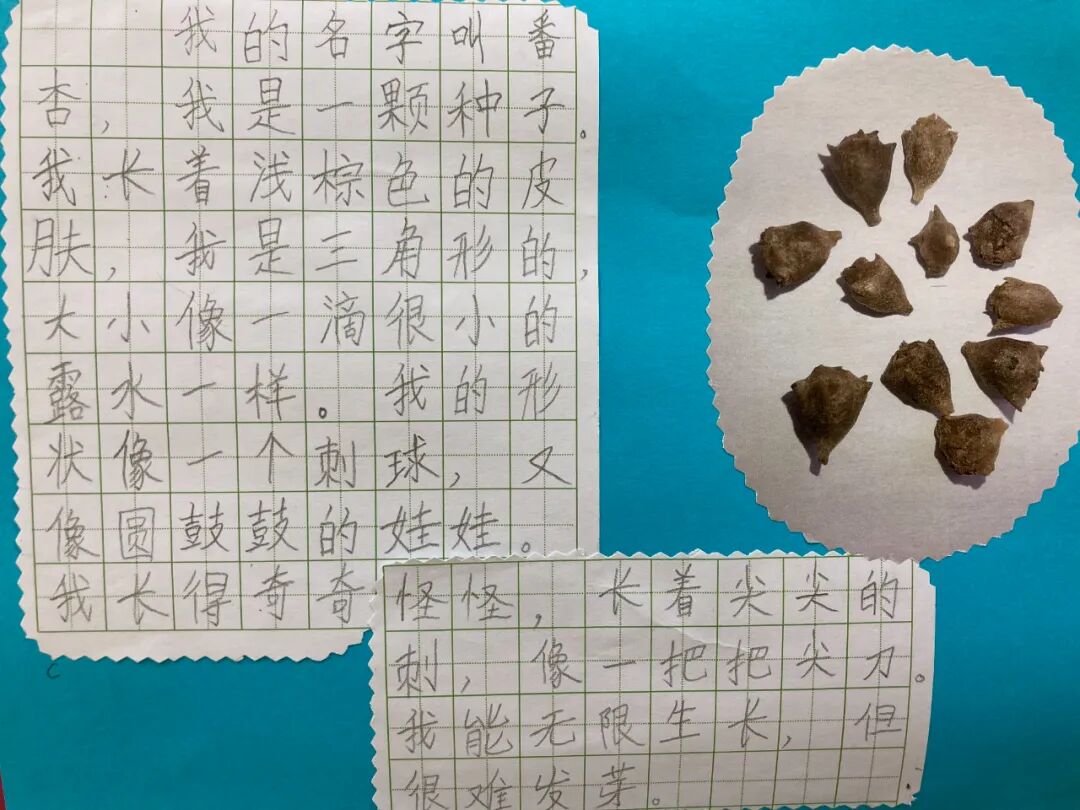 我的名字叫番
杏，我是一颗种子。
我长着浅棕色的皮
肤，我是三角形的，
大小像一滴很小的
露水一样。我的形
状像一个刺球，又
像圆鼓鼓的娃娃。
我长得奇奇怪怪，长着尖尖的
刺，像一把把尖刀。
我能无限生长，但
很难发芽。